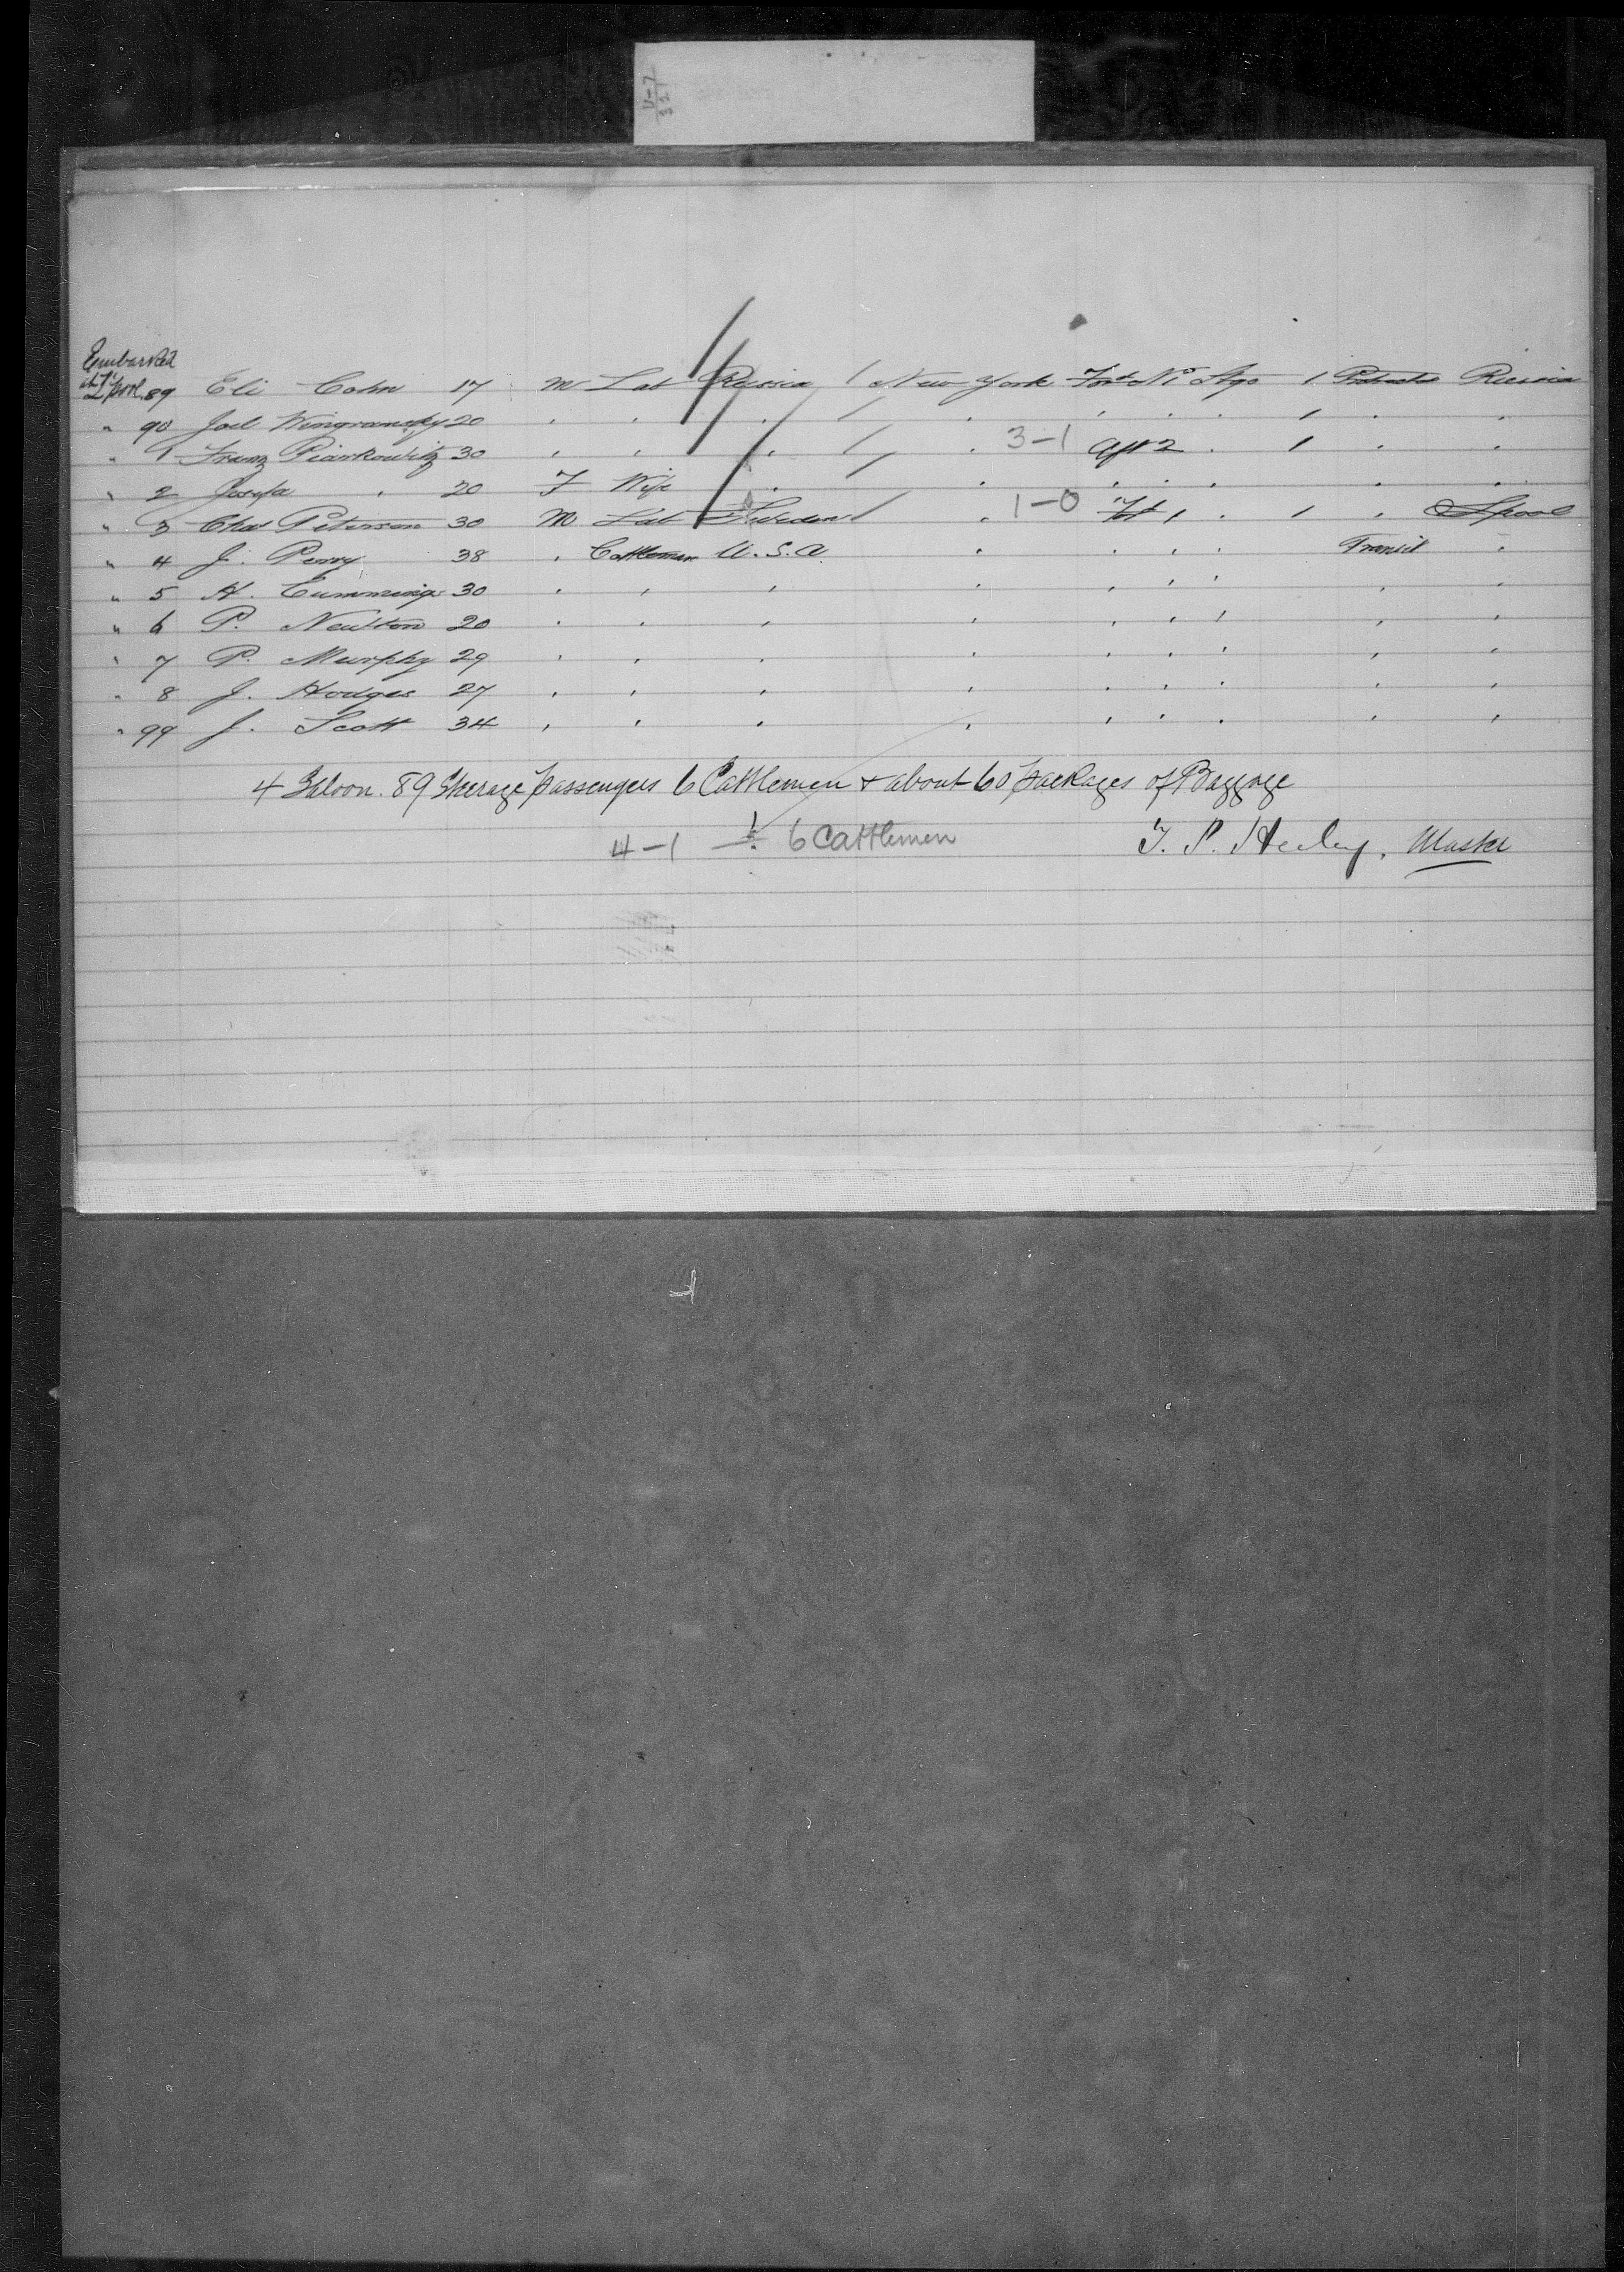 U-7
321
Embarked
at L'pool 89 Eli Cohn 17 M Lab Russia / New York Ford No 1 Stge 1 Protracted Russia
" 90 Joel Wingransky 20 " " " / " " " " 1 " "
" 1 Franz Piarkowitz 30 " " " / " 3-1 Aft 2 " 1 " "
" 2 Josefa " 20 F Wife " / " " " " " "
" 3 Chas Peterson 30 M Lab Sweden / " 1-0 Ford 1 " 1 " L'pool
" 4 J. Perry 38 " Cattleman U.S.A. " " " " Transit "
" 5 H. Cummings 30 " " " " " " " " "
" 6 P. Newton 20 " " " " " " " " "
" 7 P. Murphy 29 " " " " " " " " "
" 8 J. Hodges 27 " " " " " " " " "
" 99 J. Scott 34 " " " " " " " " "
4 Saloon. 89 Steerage passengers 6 Cattlemen + about 60 packages of Baggage
4-1 6 Cattlemen T. P. Heeley, Master